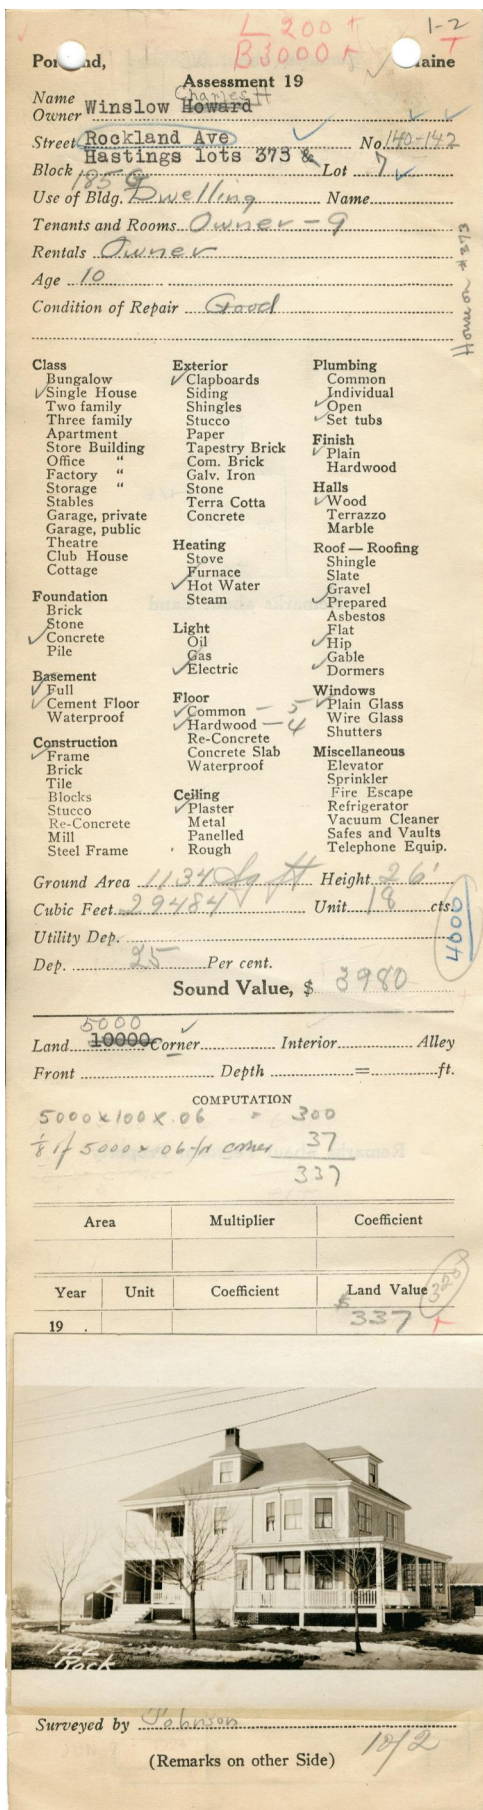 L 200 +
1-2
B 3000 +
T
Portland, Maine
Assessment 19
Charles H
Name
Owner Winslow Howard
Street Rockland Ave No. 140-142
Hastings lots 373 &
Block 185 G Lot 7
Use of Bldg. Dwelling Name
Tenants and Rooms Owner - 9
Rentals Owner
Age 10
Condition of Repair Good
House on #373
Class
✓ Bungalow
✓ Single House
Two family
Three family
Apartment
Store Building
Office "
Factory "
Storage "
Stables
Garage, private
Garage, public
Theatre
Club House
Cottage
Foundation
Brick
Stone
✓ Concrete
Pile
Basement
✓ Full
✓ Cement Floor
Waterproof
Construction
✓ Frame
Brick
Tile
Blocks
Stucco
Re-Concrete
Mill
Steel Frame
Exterior
✓ Clapboards
Siding
Shingles
Stucco
Paper
Tapestry Brick
Com. Brick
Galv. Iron
Stone
Terra Cotta
Concrete
Heating
Stove
Furnace
✓ Hot Water
Steam
Light
Oil
Gas
✓ Electric
Floor
✓ Common - 5
✓ Hardwood - 4
Re-Concrete
Concrete Slab
Waterproof
Ceiling
✓ Plaster
Metal
Panelled
Rough
Plumbing
Common
Individual
✓ Open
✓ Set tubs
Finish
✓ Plain
Hardwood
Halls
✓ Wood
Terrazzo
Marble
Roof — Roofing
Shingle
Slate
Gravel
✓ Prepared
Asbestos
Flat
✓ Hip
✓ Gable
✓ Dormers
Windows
✓ Plain Glass
Wire Glass
Shutters
Miscellaneous
Elevator
Sprinkler
Fire Escape
Refrigerator
Vacuum Cleaner
Safes and Vaults
Telephone Equip.
Ground Area 1134 Sq ft Height 26'
Cubic Feet 29484 Unit 18 cts.
4000
Utility Dep.
Dep. 25 Per cent.
Sound Value, $ 3980
5000
Land 10000 Corner Interior Alley
Front Depth = ft.
COMPUTATION
5000 x 100 x .06 = 300
1/8 of 5000 x .06 for corner 37
337
Area Multiplier Coefficient
Year Unit Coefficient Land Value
320
19 . $337 +
142
Rock
Surveyed by Johnson
(Remarks on other Side)
10/2